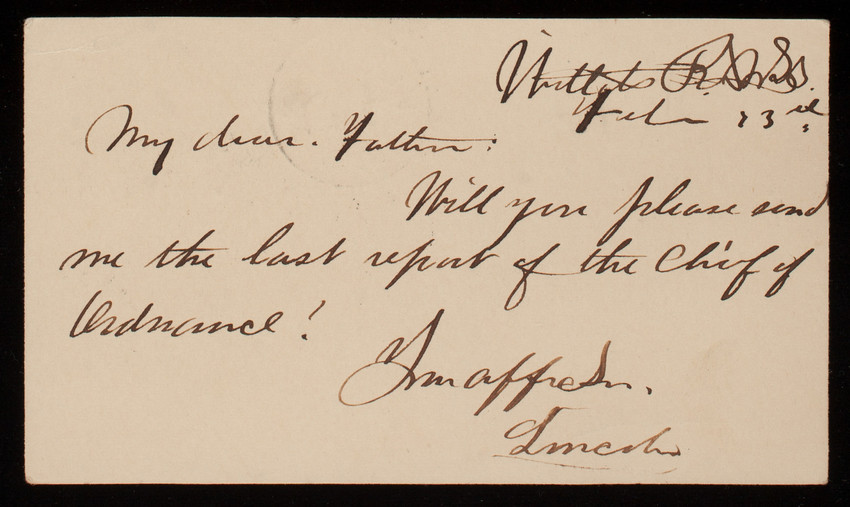 Willets Point
Feb 23rd
My dear Father:
Will you please send
me the last report of the Chief of
Ordnance!
Your affec Son.
Lincoln